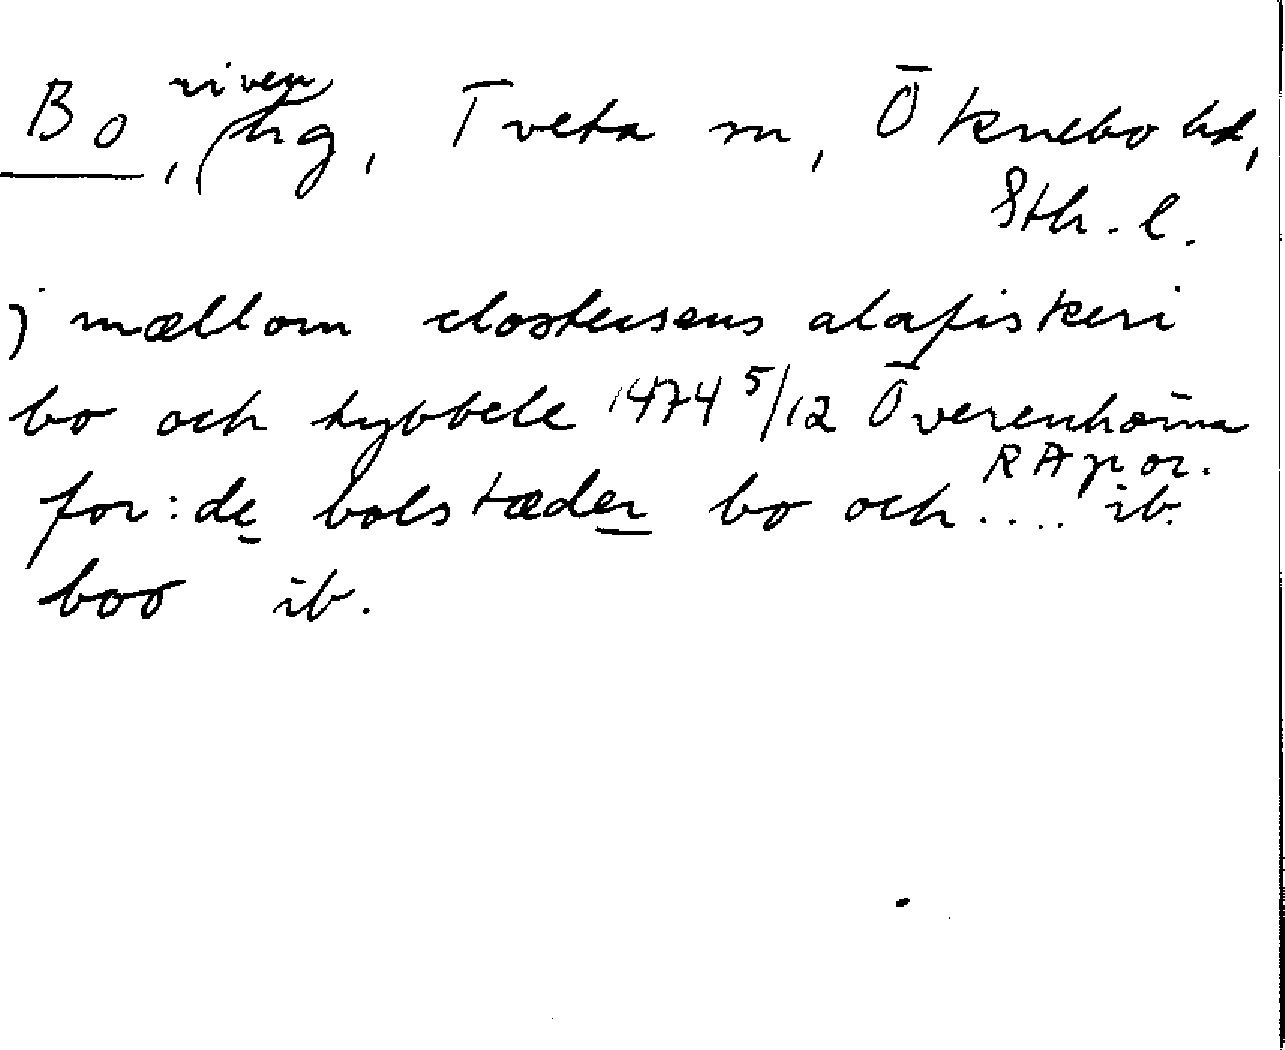 Bo, riven hg, Tveta sn, Öknebo hd,
Sth. l.
j mællom closterens alafiskeri
bo och hybbele 1474 5/12 Överenhörna
RA p or.
for:de bolstæder bo och .... ib.
boo ib.